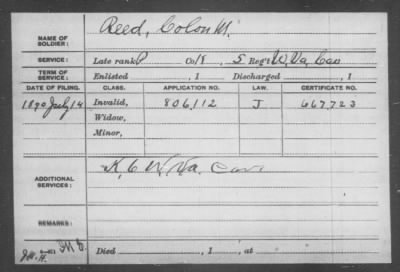 NAME OF SOLDIER: Reed, Colon M.
SERVICE: Late rank P Co. S Reg't W. Va. Cav
TERM OF SERVICE: Enlisted , 1 Discharged , 1
DATE OF FILING. CLASS. APPLICATION NO. LAW. CERTIFICATE NO.
1890 July 14 Invalid, 806,112 J 667,723
Widow,
Minor,
ADDITIONAL SERVICES: K, 6 W. Va. Cav.
REMARKS:
Died , 1 , at